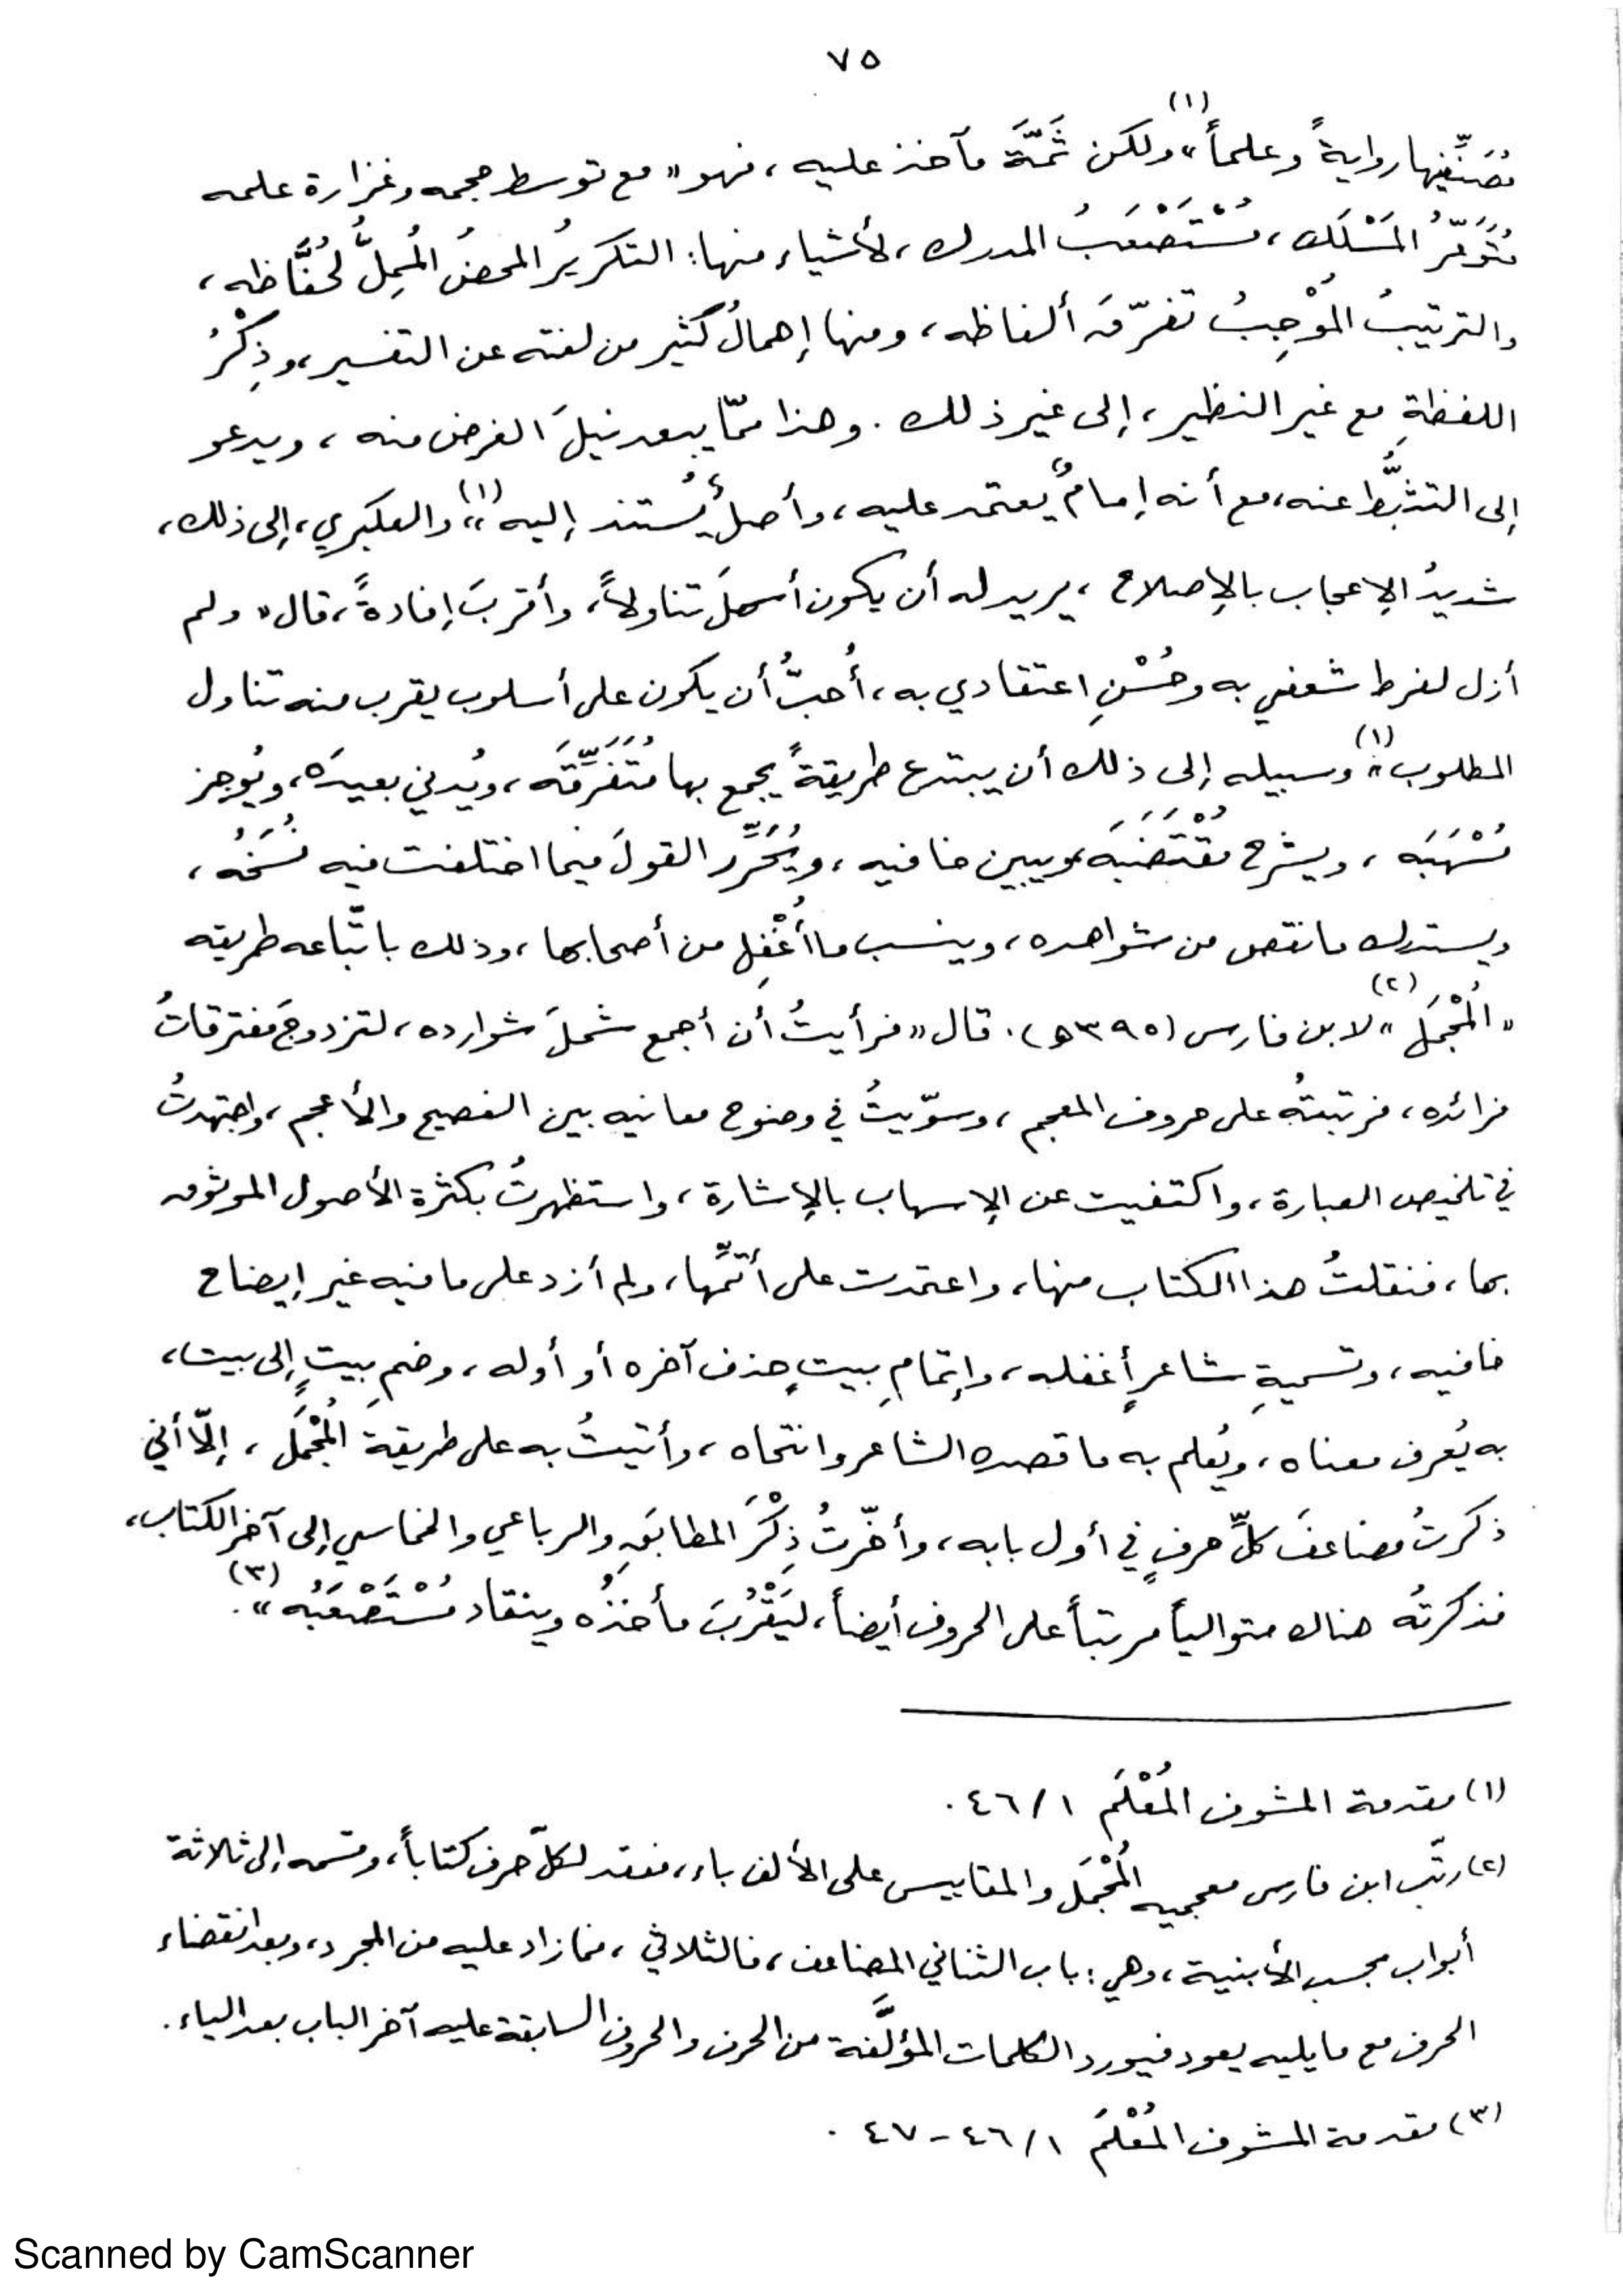 ٧٥
مُصَنِّفيها روايةً وعلماً»(١) ولكن ثَمَّةَ مآخذ عليه، فهو «مع توسط حجمه وغزارة علمه
مُتَوَعِّرُ المَسْلَك، مُسْتَصْعَبُ المدرك، لأشياء منها: التكريرُ المحضُ المُمِلُّ لحُفَّاظه،
والترتيبُ المُوْجِبُ تفرّقَ ألفاظه، ومنها إهمالُ كثير من لغته عن التفسير، وذِكْرُ
اللفظةِ مع غير النظير، إلى غير ذلك. وهذا ممّا يبعد نيلَ الغرض منه، ويدعو
إلى التثبُّط عنه، مع أنه إمامٌ يعتمد عليه، وأصلٌ يُستند إليه»(١) والعكبري، إلى ذلك،
شديدُ الإعجاب بالإصلاح، يريد له أن يكون أسهلَ تناولاً، وأقربَ إفادةً، قال «ولم
أزل لفرط شغفي به وحُسْنِ اعتقادي به، أُحبُّ أن يكون على أسلوب يقرب منه تناول
المطلوب»(١) وسبيله إلى ذلك أن يبتدع طريقةً يجمع بها مُتَفَرِّقَه، ويُدني بعيدَه، ويُوجز
مُسْهَبَه، ويشرح مُقْتَضَبَه ويبين خافيه، ويُحَرِّر القولَ فيما اختلفت فيه نُسَخُه،
ويستدرك ما نقص من شواهده، وينسب ما أُغْفِل من أصحابها، وذلك باتّباعه طريقه
«المُجْمَل»(٢) لابن فارس (٣٩٥ هـ). قال «فرأيتُ أن أجمع شملَ شوارده، لتزدوجَ مفترقاتُ
فرائده، فرتبتُه على حروف المعجم، وسوّيتُ في وضوح معانيه بين الفصيح والأعجم، واجتهدتُ
في تلخيص العبارة، واكتفيت عن الإسهاب بالإشارة، واستظهرتُ بكثرة الأصول الموثوق
بها، فنقلتُ هذا الكتاب منها، واعتمدت على أتمِّها، ولم أزد على ما فيه غير إيضاح
خافيه، وتسميةِ شاعرٍ أغفله، وإتمامِ بيتٍ حذف آخره أو أوله، وضمِ بيتٍ إلى بيت،
به يُعرف معناه، ويُعلم به ما قصده الشاعر وانتحاه، وأتيتُ به على طريقة المُجْمَل، إلّا أني
ذكرتُ مضاعفَ كلِّ حرفٍ في أول بابه، وأخّرتُ ذِكْرَ المطابَقِ والرباعي والخماسي إلى آخر الكتاب،
فذكرتُه هناك متوالياً مرتباً على الحروف أيضاً، ليَقْرُبَ مأخذُه وينقاد مُسْتَصْعَبُه»(٣).
(١) مقدمة المشوف المُعْلَم ١ / ٤٦.
(٢) رتّب ابن فارس معجميه المُجْمَل والمقاييس على الألف باء، فعقد لكلّ حرف كتاباً، وقسمه إلى ثلاثة
أبواب بحسب الأبنية، وهي: باب الثنائي المضاعف، فالثلاثي، فما زاد عليه من المجرد، وبعد انقضاء
الحرف مع ما يليه يعود فيورد الكلمات المؤلَّفة من الحرف والحروف السابقة عليه آخر الباب بعد الياء.
(٣) مقدمة المشوف المُعْلَم ١ / ٤٦ - ٤٧.
Scanned by CamScanner